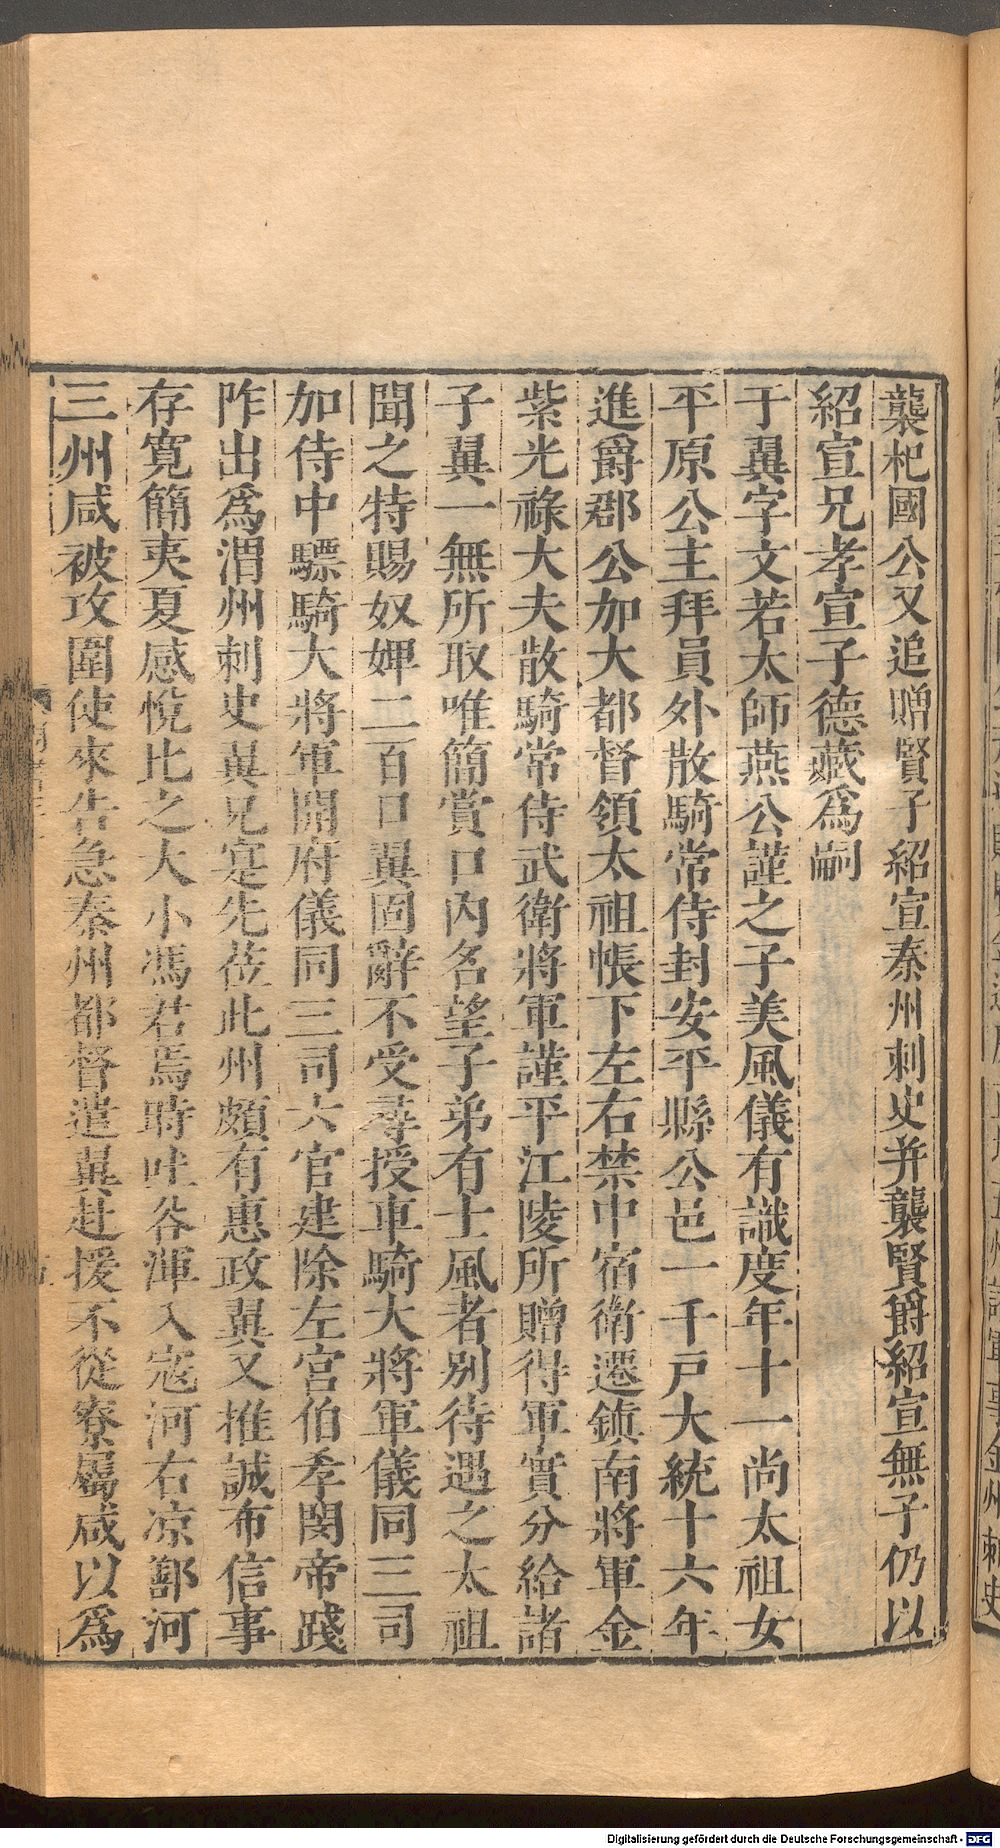 襲杞國公又追贈賢子紹宣秦州刺史并襲賢爵紹宣無子仍以
紹宣兄孝宣子德藏爲嗣
于翼字文若太師燕公謹之子美風儀有識度年十一尚太祖女
平原公主拜員外散騎常侍封安平縣公邑一千戸大統十六年
進爵郡公加大都督領太祖帳下左右禁中宿衛遷鎮南將軍金
紫光祿大夫散騎常侍武衛將軍謹平江陵所贈得軍實分給諸
子翼一無所取唯簡賞口內名望子弟有士風者别待遇之太祖
聞之特賜奴婢二百口翼固辭不受尋授車騎大將軍儀同三司
加侍中驃騎大將軍開府儀同三司六官建除左宮伯孝閔帝踐
阼出爲渭州刺史翼兄寔先莅此州頗有惠政翼又推誠布信事
存寛簡夷夏感悅比之大小馮君焉時吐谷渾入寇河右凉鄯河
三州咸被攻圍使來告急秦州都督遣翼赴援不從寮屬咸以爲
Digitalisierung gefördert durch die Deutsche Forschungsgemeinschaft - DFG